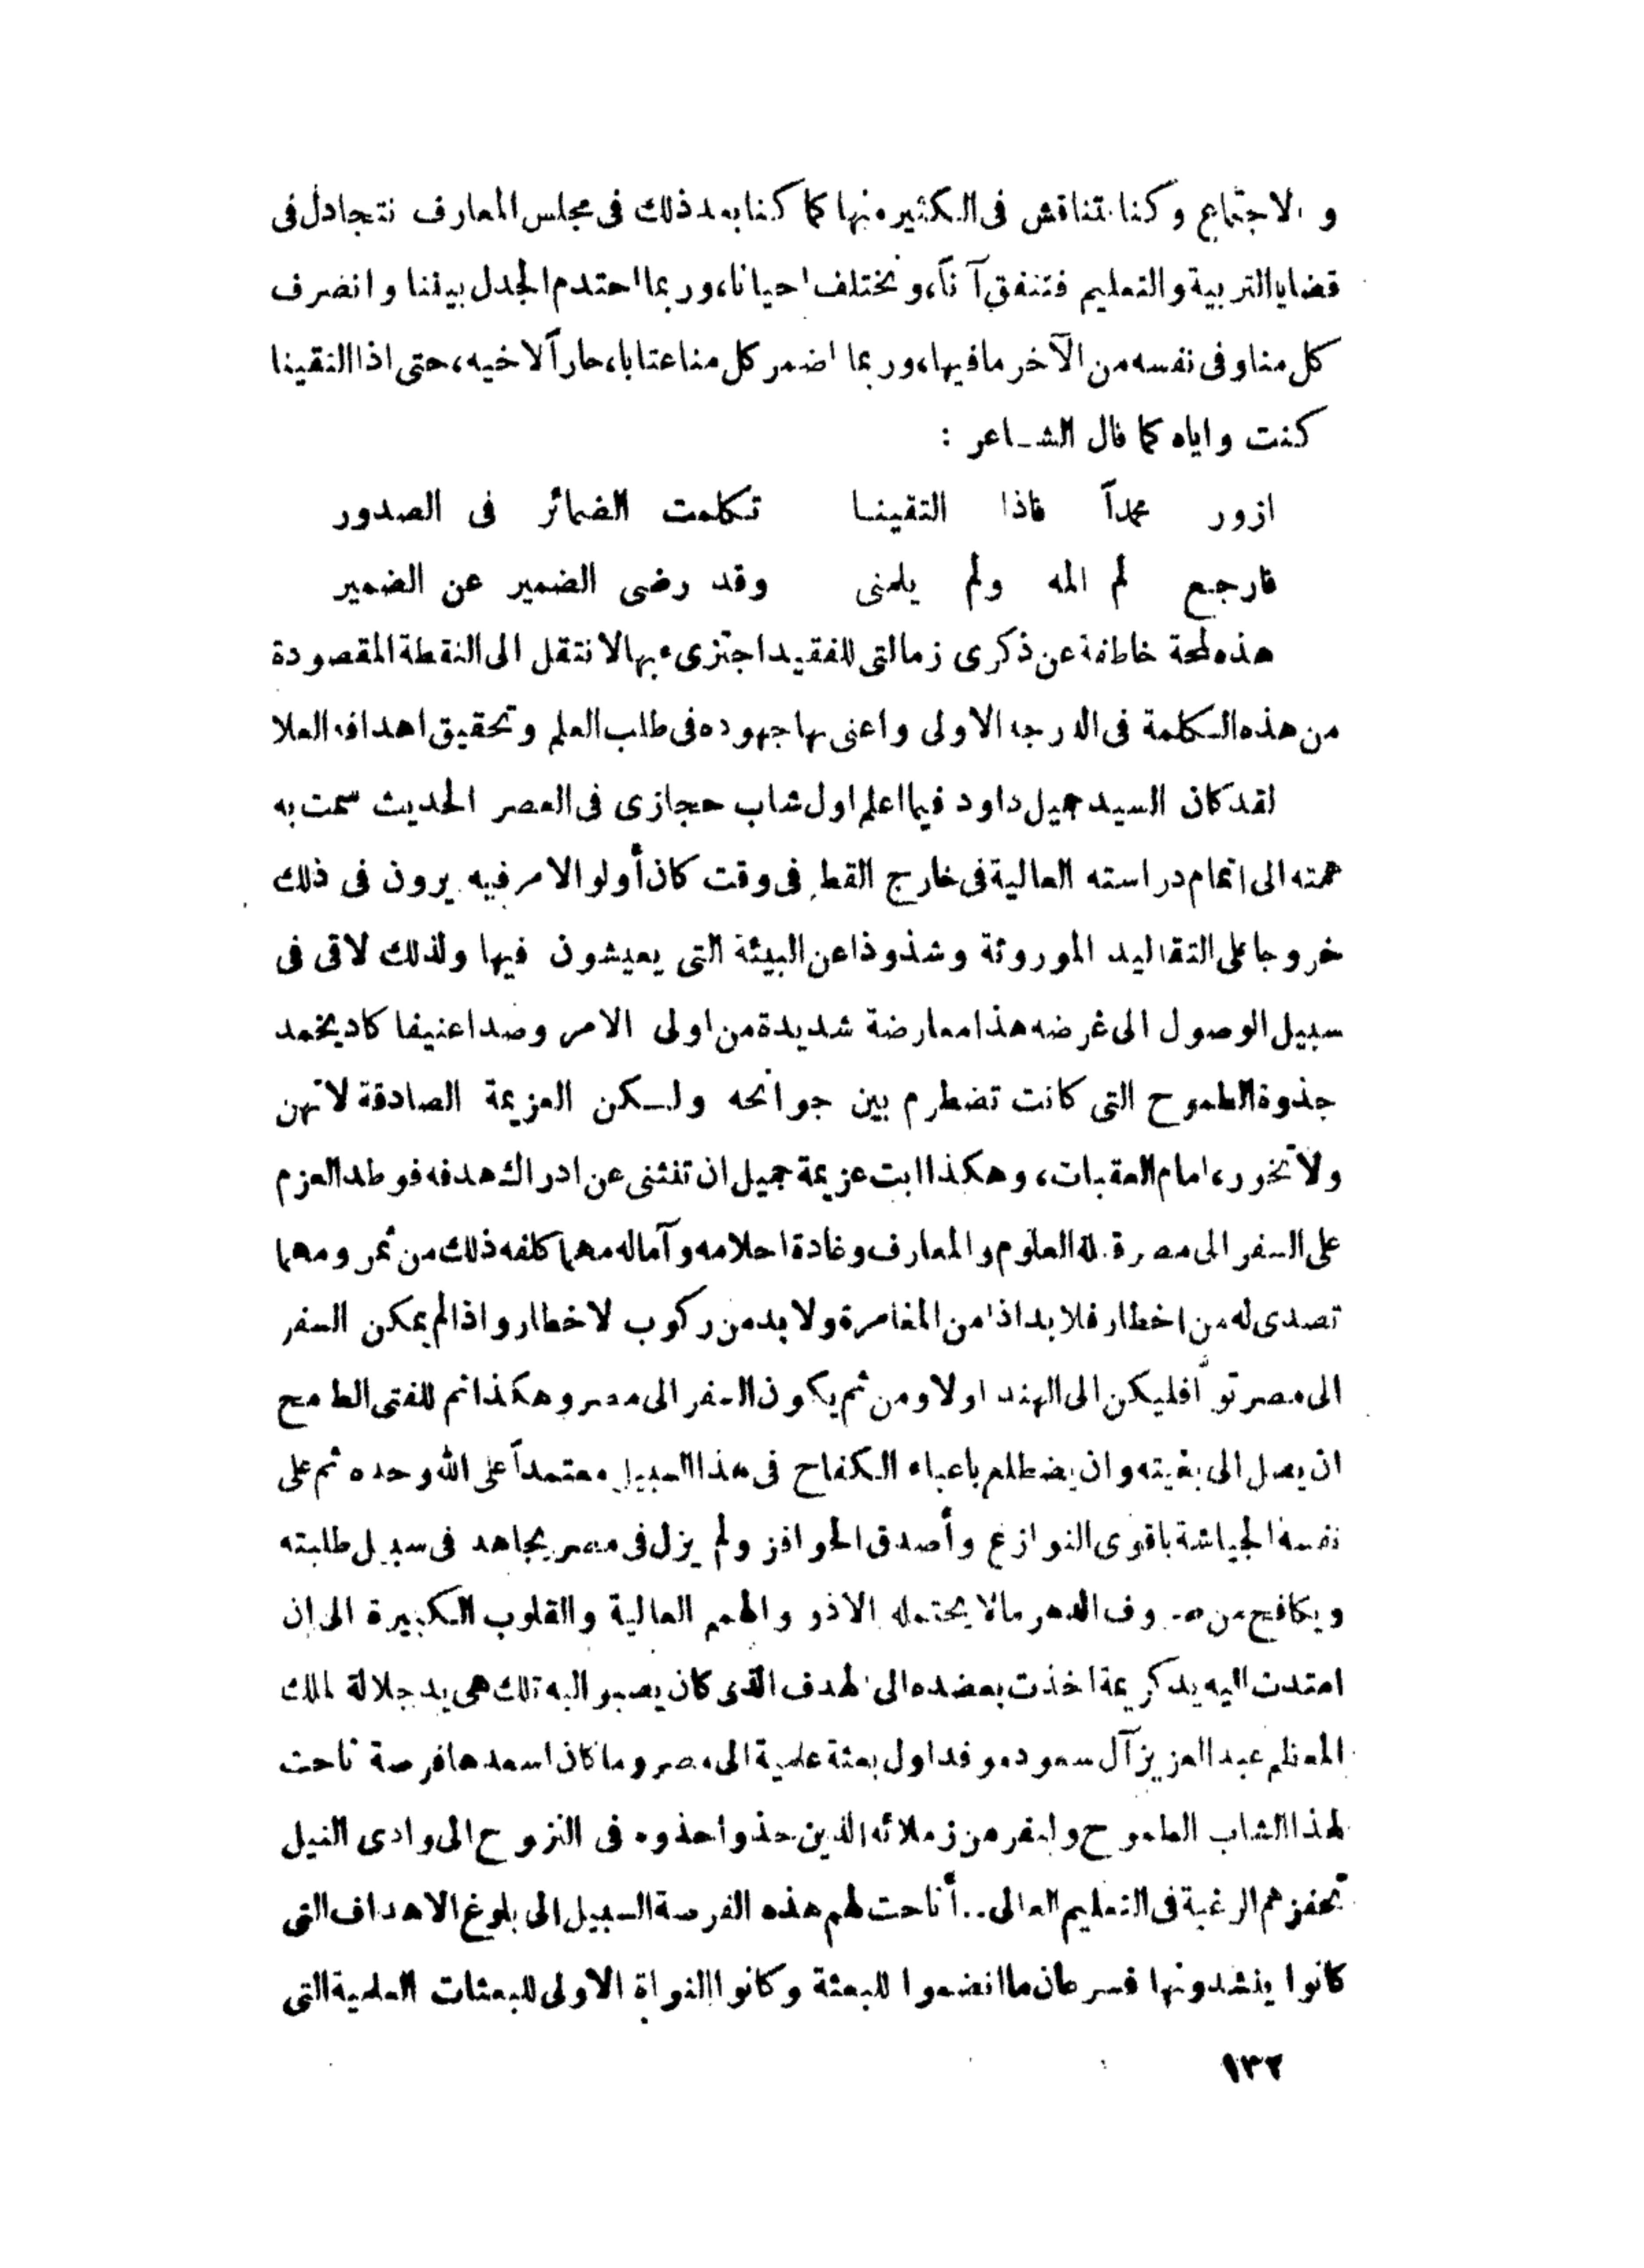 و الاجتماع وكنا نتناقش فى الكثير منها كما كنا بعد ذلك فى مجلس المعارف نتجادل فى
قضايا التربية والتعليم فنتفق آناً، ونختلف احيانا، وربما احتدم الجدل بيننا وانصرف
كل منا وفى نفسه من الآخر ما فيها، وربما اضمر كل منا عتابا، حاراً لاخيه، حتى اذا التقينا
كنت واياه كما قال الشاعر :
ازور محمداً فاذا التقينا تكلمت الضمائر فى الصدور
فارجع لم المه ولم يلمنى وقد رضى الضمير عن الضمير
هذه لمحة خاطفة عن ذكرى زمالتى للفقيد اجتزىء بها لانتقل الى النقطة المقصودة
من هذه الكلمة فى الدرجة الاولى واعنى بها جهوده فى طلب العلم وتحقيق اهدافه العلا
لقد كان السيد جميل داود فيما اعلم اول شاب حجازى فى العصر الحديث سمت به
همته الى اتمام دراسته العالية فى خارج القطر فى وقت كان أولو الامر فيه يرون فى ذلك
خروجا على التقاليد الموروثة وشذوذا عن البيئة التى يعيشون فيها ولذلك لاقى فى
سبيل الوصول الى غرضه هذا معارضة شديدة من اولى الامر وصدا عنيفا كاد يخمد
جذوة الطموح التى كانت تضطرم بين جوانحه ولكن العزيمة الصادقة لاتهن
ولا تخور، امام العقبات، وهكذا ابت عزيمة جميل ان تنثنى عن ادراك هدفه فوطد العزم
على السفر الى مصر قبلة العلوم والمعارف وغادة احلامه وآماله مهما كلفه ذلك من ثمر ومهما
تصدى له من اخطار فلا بد اذا من المغامرة ولا بد من ركوب لاخطار واذا لم يمكن السفر
الى مصر تواً فليكن الى الهند اولا ومن ثم يكون السفر الى مصر وهكذا تم للفتى الطامح
ان يصل الى بغيته وان يضطلع باعباء الكفاح فى هذا السبيل معتمداً على الله وحده ثم على
نفسه الجياشة باقوى النوازع وأصدق الحوافز ولم يزل فى مصر يجاهد فى سبيل طلبته
ويكافح من صروف الدهر مالا يحتمله الاذو والهمم العالية والقلوب الكبيرة الى ان
امتدت اليه يد كريمة اخذت بعضده الى الهدف الذى كان يصبو اليه تلك هى يد جلالة الملك
المعظم عبد العزيز آل سعود موفد اول بعثة علمية الى مصر وما كان اسعدها فرصة تاحت
لهذا الشاب الطموح ولنفر من زملائه الذين حذوا حذوه فى النزوح الى وادى النيل
تحفزهم الرغبة فى التعليم العالى.. أتاحت لهم هذه الفرصة السبيل الى بلوغ الاهداف التى
كانوا ينشدونها فسرعان ما انضموا للبعثة وكانوا النواة الاولى للبعثات العلمية التى
١٣٢